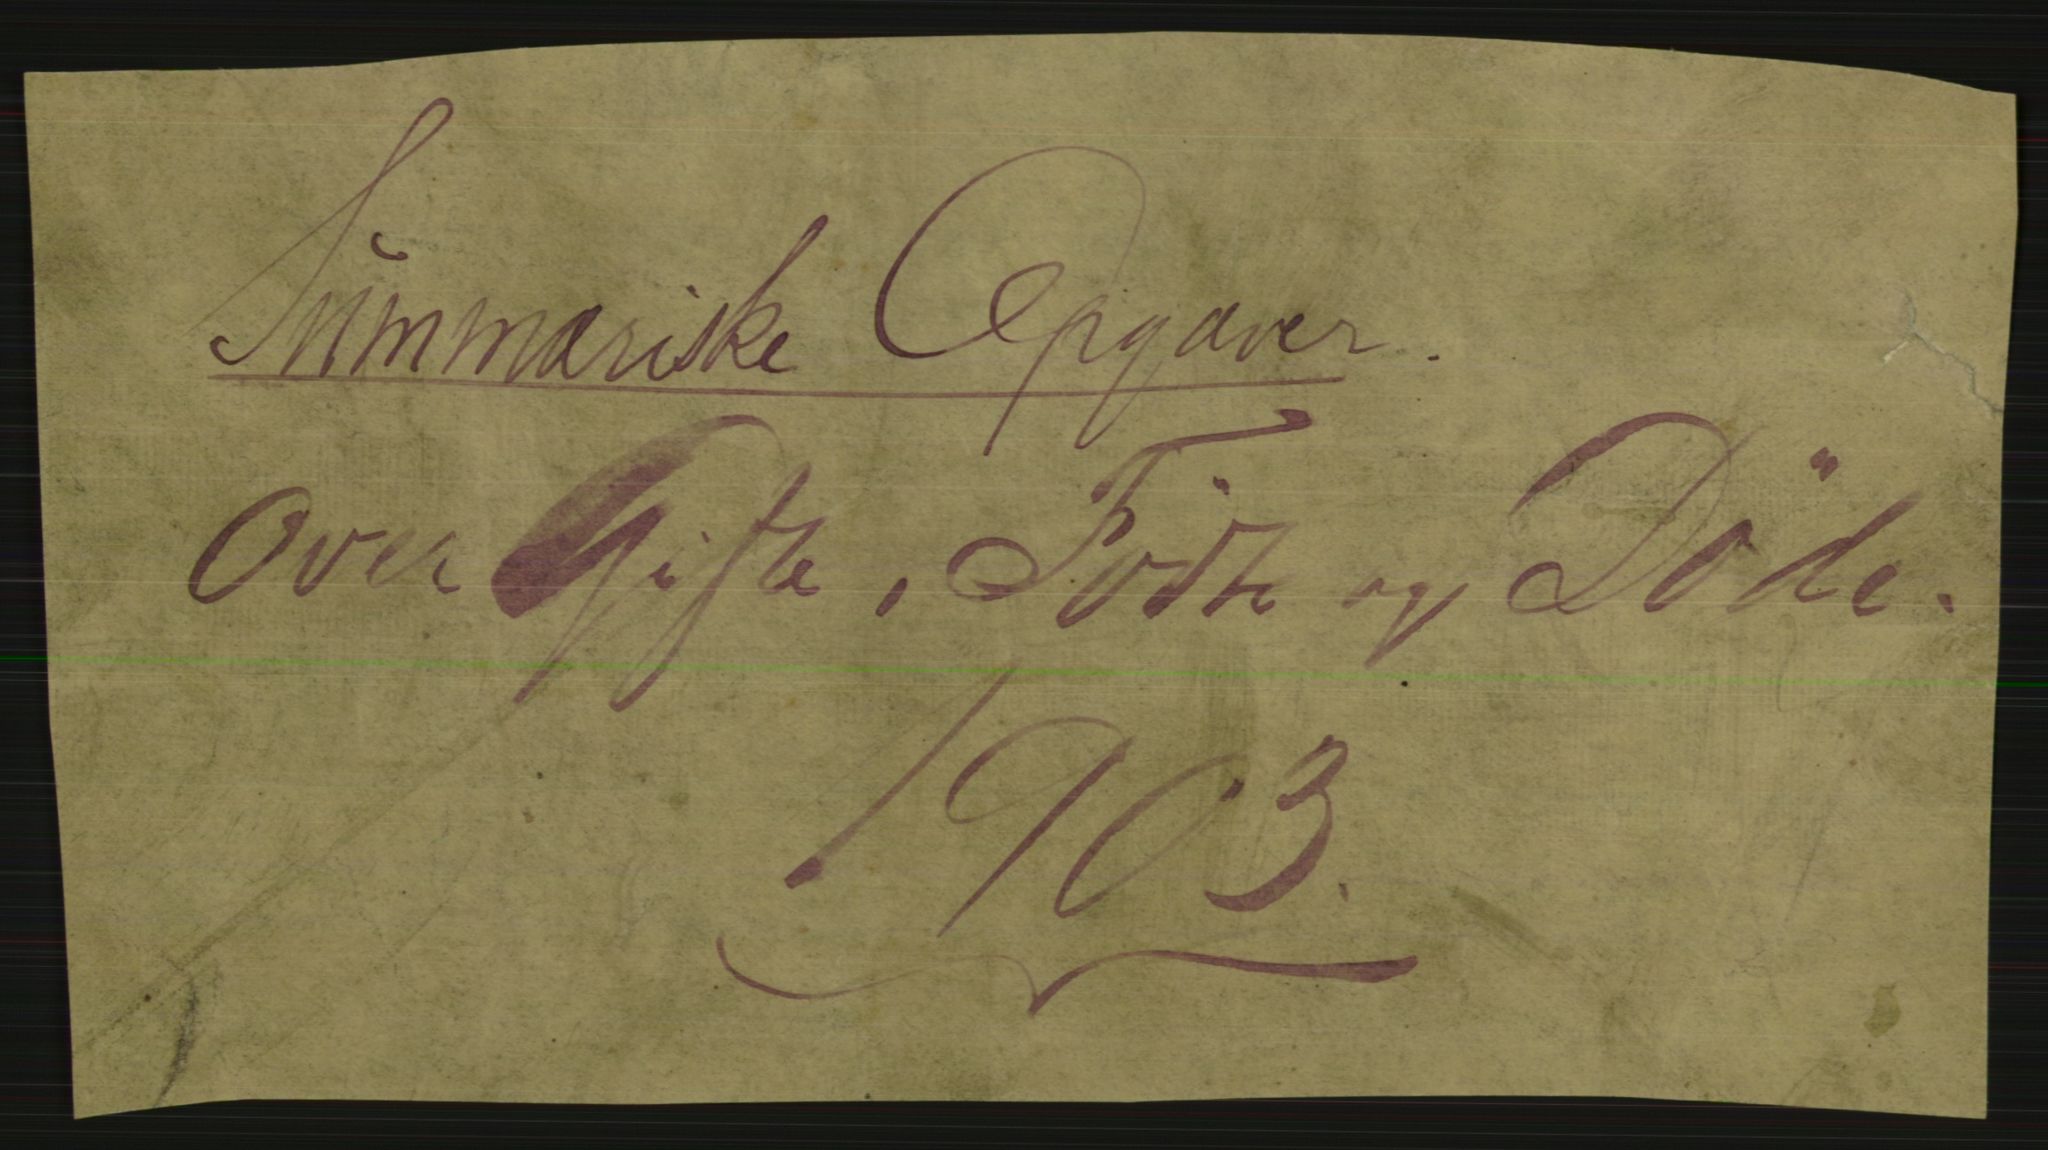 Summariske Opgaver.
Over Gifte, Födte og Döde.
1903.